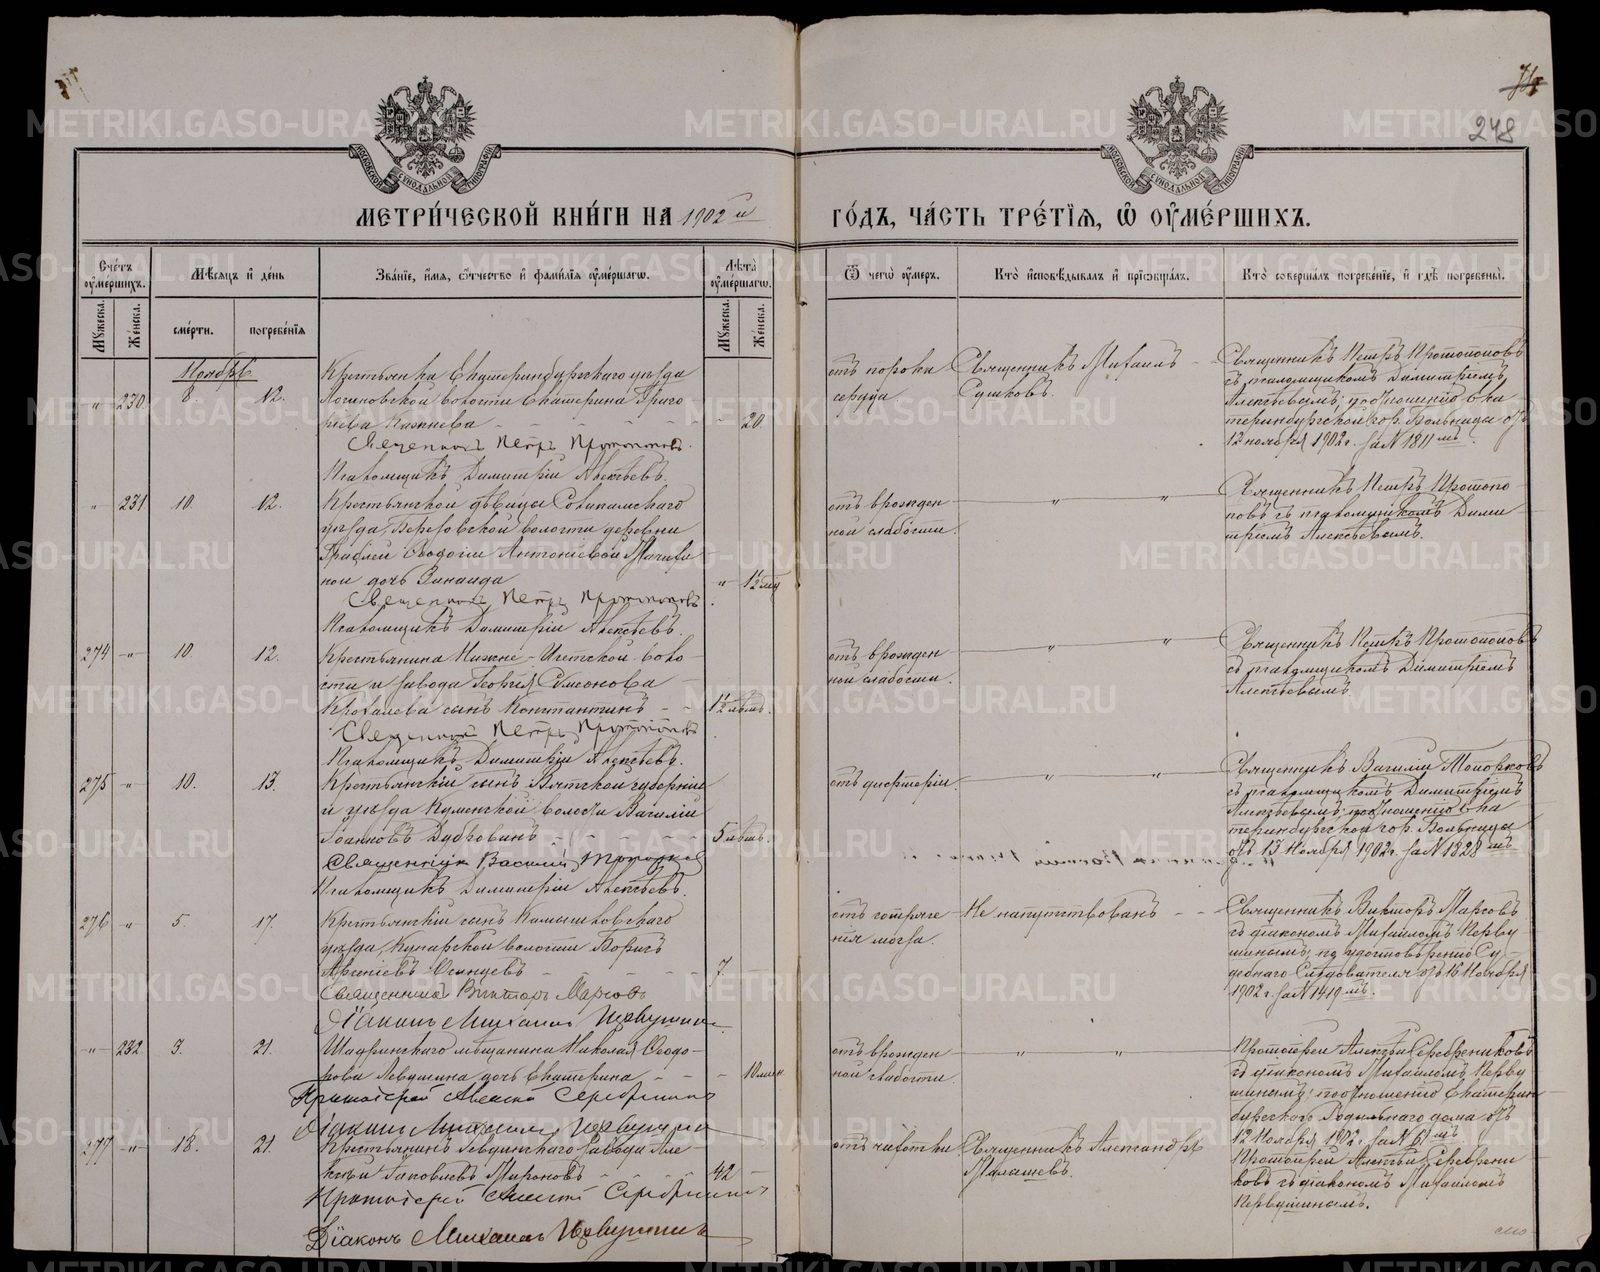 248
МЕТРИ́ЧЕСКОЙ КНИ́ГИ НА 1902 й
ГО́ДЪ, ЧА́СТЬ ТРЕ́ТЇѦ, Ѡ҆ ОУ҆МЕ́РШИХЪ.
Сче́тъ оу҆ме́ршихъ.
Мꙋ́жеска.
Же́нска.
Мѣ́сѧцъ и҆ де́нь
сме́рти.
погребе́нїѧ
Зва́нїе, и҆́мѧ, ѻ҆́тчество и҆ фами́лїѧ оу҆ме́ршагѡ.
Лѣ̀та оу҆ме́ршагѡ.
Мꙋ́жеска.
Же́нска.
Ѿ чегѡ̀ оу҆́меръ.
Кто̀ и҆сповѣ́дывалъ и҆ прїѡбща́лъ.
Кто̀ соверша́лъ погребе́нїе, и҆ гдѣ̀ погребены̀.
Ноябрь
" 230. 8. 12.
Крестьянка Екатеринбургскаго уѣзда
Логиновской волости Екатерина Григо
рьева
20
Священникъ Петръ Протопоповъ.
Псаломщикъ Димитрій Алексѣевъ.
отъ порока
сердца.
Священникъ Михаилъ
Сушковъ.
Священникъ Петръ Протопоповъ
съ псаломщикомъ Димитріемъ
Алексѣевымъ; по отношенію Ека
теринбургской гор. Больницы отъ
12 ноября 1902 г. за № 1811 мъ.
" 231 10. 12.
Крестьянской дѣвицы Соликамскаго
уѣзда, волости деревни
Ѳеодосіи Антоніевой
ной дочь Зинаида
" 1½ мѣс
Священникъ Петръ Протопоповъ
Псаломщикъ Димитрій Алексѣевъ.
отъ врожден
ной слабости.
" "
Священникъ Петръ Протопо
повъ съ псаломщикомъ Дими
тріемъ Алексѣевымъ.
274 " 10. 12.
Крестьянина Нижне-Исетской воло
сти и завода Георгія Симонова
сынъ Константинъ
1½
Священникъ Петръ Протопоповъ
Псаломщикъ Димитрій Алексѣевъ.
отъ врожден
ной слабости.
" "
Священникъ Петръ Протопоповъ
съ псаломщикомъ Димитріемъ
Алексѣевымъ.
275 " 10. 13.
Крестьянскій сынъ Вятской губерніи
и уѣзда Куменской волости Василій
Іоанновъ Дубровинъ
5 лѣтъ.
Священникъ Василій Топорковъ
Псаломщикъ Димитрій Алексѣевъ.
отъ дифтеріи.
" "
Священникъ Василій Топорковъ
съ псаломщикомъ Димитріемъ
Алексѣевымъ; по отношенію Ека
теринбургской гор. Больницы
отъ 13 Ноября 1902 г. за № 1828 мъ
276 " 5. 17.
Крестьянскій сынъ Камышловскаго
уѣзда, Кунарской волости Борисъ
Арсеніевъ
7.
Священникъ Викторъ Марковъ
Діаконъ Михаилъ Первушинъ.
отъ сотрясе
нія мозга.
Не напутствованъ
Священникъ Викторъ Марковъ
съ діакономъ Михаиломъ Перву
шинымъ; по удостовѣренію Су
дебнаго Слѣдователя отъ 16 Ноября
1902 г. за № 1419 мъ.
" 232 3. 21.
Шадринскаго мѣщанина Николая Ѳеодо
рова Левушина дочь Екатерина
10 мин
Протоіерей Алексій Серебренниковъ
Діаконъ Михаилъ Первушинъ
отъ врожден
ной слабости.
" "
Протоіерей Алексѣй Серебрениковъ
съ діакономъ Михаиломъ Перву
шинымъ; по отношенію Екатерин
бургскаго Родильнаго дома отъ
12 Ноября 1902 г. за № 61 мъ.
277 " 18. 21.
Крестьянинъ Ревдинскаго завода Але
ксѣй Іаковлевъ Мироновъ
42
Протоіерей Алексій Серебренниковъ
Діаконъ Михаилъ Первушинъ
отъ чахотки
Священникъ Александръ
Малышевъ.
Протоіерей Алексѣй Серебрени
ковъ съ діакономъ Михаиломъ
Первушинымъ.
METRIKI.GASO-URAL.RU